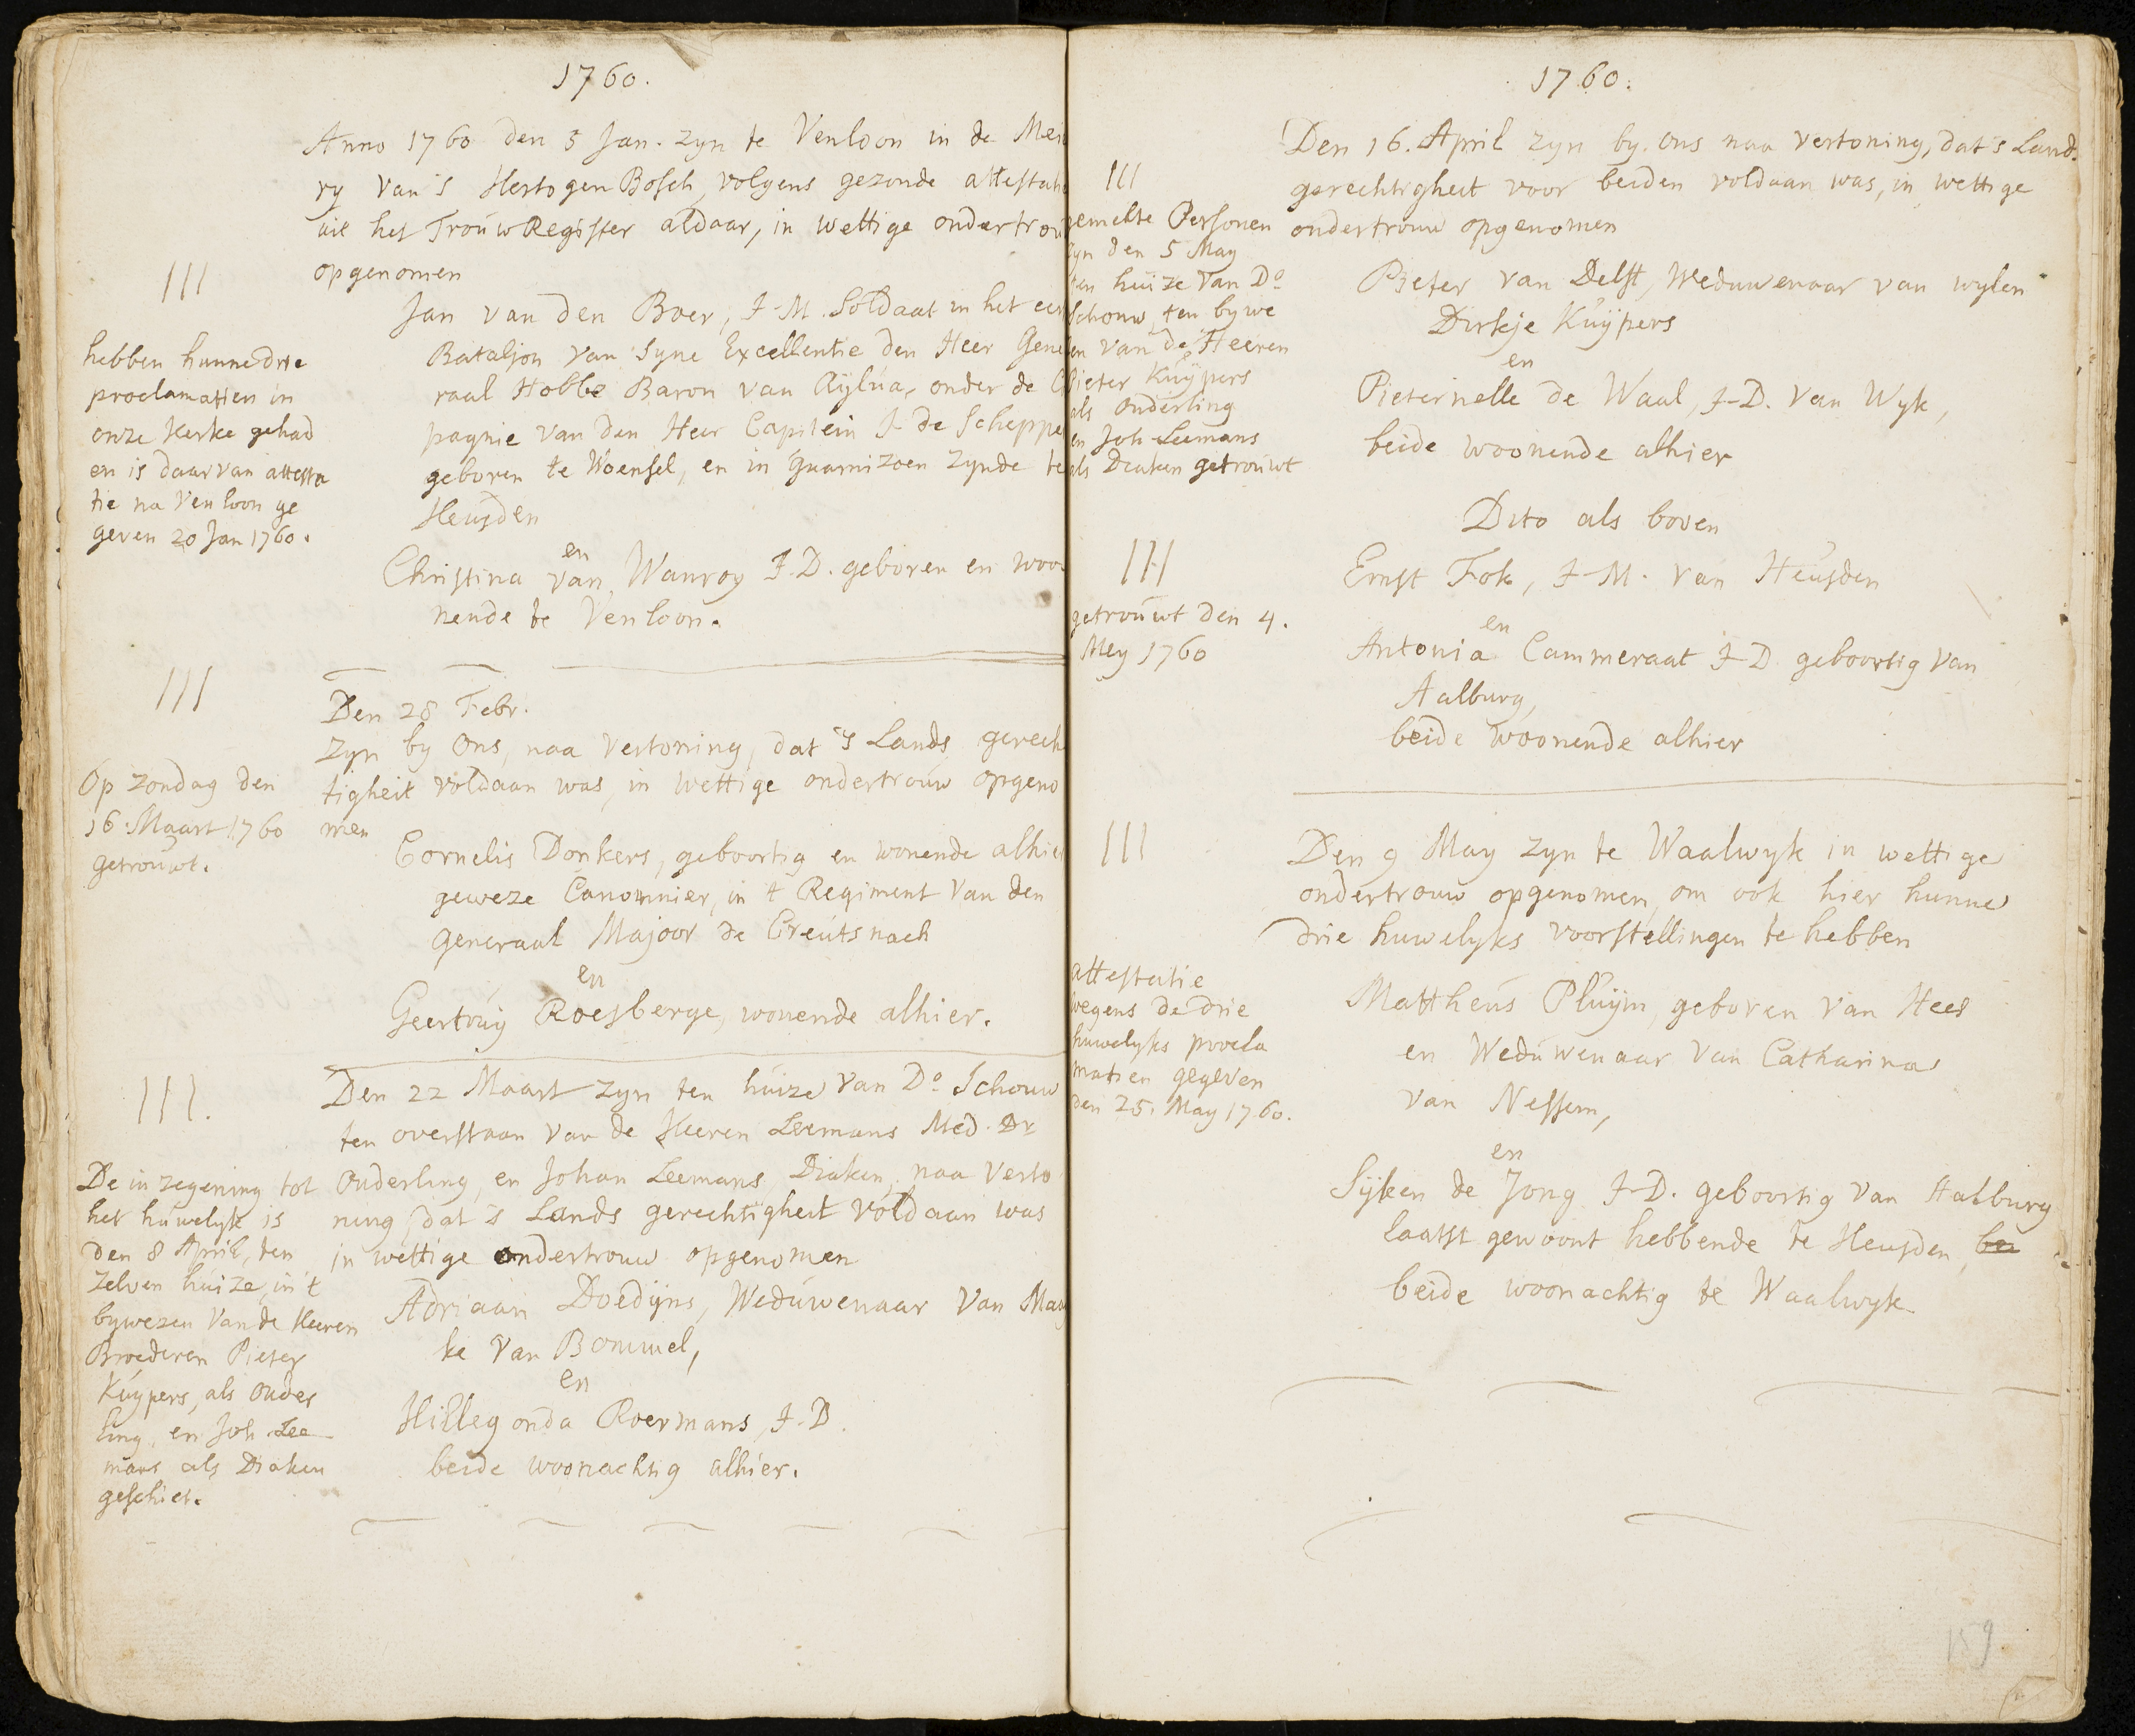 1760.
Anno 1760 den 5 Jan. zyn te Venloon in de Mei
ry van 's HertogenBosch, volgens gezonde attestati
uit het TrouwRegister aldaar, in wettige ondertrou
opgenomen
III
Jan van den Boer, J-M. Soldaat in het eer
Bataljon van Syne Excellentie den Heer Gene
raal Hobbe Baron van Aylua, onder de C
pagnie van den Heer Capitein J de Scheppe
geboren te Woensel, en in Guarnizoen zynde te
Heusden
en
Christina van Wanroy J.D. geboren en woo
nende te Venloon.
hebben hunne drie
proclamatien in
onze Kerke gehad
en is daar van attesta
tie na Venloon ge
geven 20 Jan 1760.
III
Den 28 Febr.
zyn by Ons, naa vertoning, dat 's Lands gerech
tigheit voldaan was, in wettige ondertrouw opgeno
men
Cornelis Donkers, geboortig en wonende alhier
geweze Canonnier, in t Regiment van den
Generaal Majoor de Creutsnach
en
Geertruy Roesberge, wonende alhier.
Op zondag den
16 Maart 1760
getrouwt.
III.
Den 22 Maart zyn ten huize van Do Schouw
ten overstaan van de Heeren Leemans Med. Dr
Ouderling, en Johan Leemans, Diaken, naa verto
ning, dat 's Lands gerechtigheit voldaan was
in wettige ondertrouw opgenomen
Adriaan Doedyns, Weduwenaar van May
ke van Bommel,
en
Hillegonda Roermans, J-D.
beide woonachtig alhier.
De in zegening tot
het huwelyk is
den 8 April, ten
zelven huize, in 't
bywezen van de Heeren
Broederen Pieter
Kuypers, als Ouder
ling, en Joh. Lee
mans als Diaken
geschiet.
1760.
Den 16. April zyn by Ons naa vertoning, dat 's Land.
gerechtigheit voor beiden voldaan was, in wettige
ondertrouw opgenomen
III
gemelte Personen
zyn den 5 May
ten huize van Do
Schouw, ten bywe
en van de Heeren
Pieter Kuypers
als Ouderling
en Joh Leemans
als Deaken getrouwt
Pieter van Delft, Weduwenaar van wylen
Dirkje Kuypers
en
Pieternelle de Waal, J-D. van Wyk,
beide woonende alhier
Dito als boven
III
Ernst Fok, J-M. van Heusden
en
Antonia Cammeraat J-D geboortig van
Aalburg,
beide woonende alhier
getrouwt den 4.
Mey 1760
III
Den 9 May zyn te Waalwyk in wettige
ondertrouw opgenomen, om ook hier hunne
drie huwelyks voorstellingen te hebben
Mattheus Pluym, geboren van Hees
en Weduwenaar van Catharina
van Nessem,
en
Syken de Jong J-D. geboortig van Aalburg
laatst gewoont hebbende te Heusden, bei
beide woonachtig te Waalwyk
attestatie
wegens de drie
huwelyks procla
matien gegeven
den 25. May 1760.
159